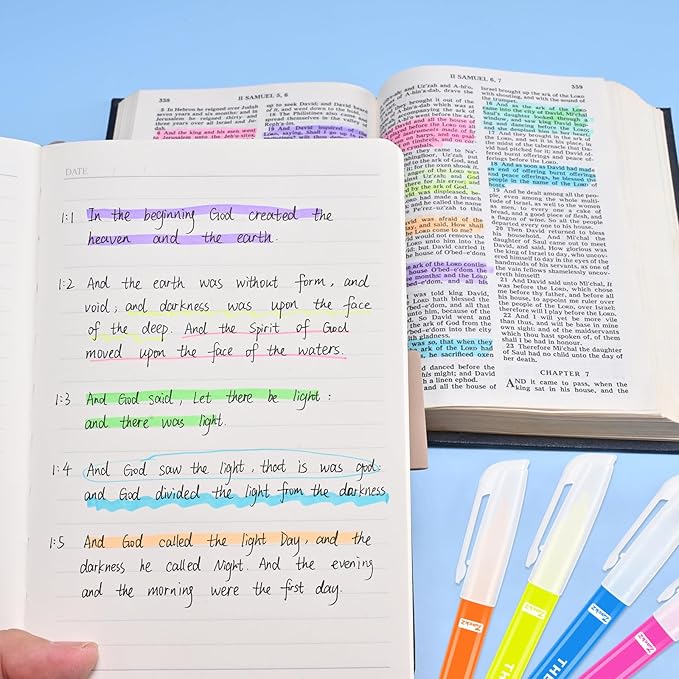 DATE
1:1 In the beginning God created the
heaven and the earth.
1:2 And the earth was without form, and
void, and darkness was upon the face
of the deep. And the Spirit of God
moved upon the face of the waters.
1:3 And God said, Let there be light:
and there was light.
1:4 And God saw the light, that is was god:
and God divided the light from the darkness
1:5 And God called the light Day, and the
darkness he called Night. And the evening
and the morning were the first day.
338
II SAMUEL 5, 6
5 In Hebron he reigned over Judah
seven years and six months: and in
Jerusalem he reigned thirty and
three years over all Israel and Judah.
6 And the king and his men went
to seek David; and David heard
of it, and went down to the hold.
18 The Philistines also came and
spread themselves in the valley of
19 And David inquired of the
II SAMUEL 6, 7
339
brought out of the
accompanying the ark
went before the ark.
all the house of
instruments made of
they came to Na-
threshingfloor, Uz'zah put
for the oxen shook it.
anger of the LORD was
there for his error; and
by the ark of God.
was displeased, be-
had made a breach
and he called the name
was afraid of the
and said, How shall
the LORD come to me?
would not remove the
LORD unto him into the
but David carried it
the house of O'bed-e'dom the
the ark of the LORD contin-
house of O'bed-e'dom
months: and the LORD
O'bed-e'dom, and all his
was told king David,
LORD hath blessed the
of O'bed-e'dom, and all
unto him, because of the
So David went and
the ark of God from the
with gladness.
was so, that when they
the ark of the LORD had
he sacrificed oxen
danced before the
his might; and David
a linen ephod.
and all the house of
Israel brought up the ark of the LORD
with shouting, and with the sound of
the trumpet.
16 And as the ark of the LORD
came into the city of David, Mi'chal
Saul's daughter looked through a
window, and saw king David
she despised him in her heart.
17 And they brought in the ark of
the LORD, and set it in his place, in
the midst of the tabernacle that Da-
vid had pitched for it: and David of-
fered burnt offerings and peace of-
ferings before the LORD.
18 And as soon as David had made
an end of offering burnt offerings
and peace offerings, he blessed the
people in the name of the LORD of
hosts.
19 And he dealt among all the peo-
ple, even among the whole multi-
tude of Israel, as well to the women
as men, to every one a cake of
bread, and a good piece of flesh, and
a flagon of wine. So all the people
departed every one to his house.
20 Then David returned to bless
his household. And Mi'chal the
daughter of Saul came out to meet
David, and said, How glorious was
the king of Israel to day, who uncov-
ered himself to day in the eyes of the
handmaids of his servants, as one of
the vain fellows shamelessly uncov-
ereth himself!
21 And David said unto Mi'chal, It
was before the LORD, which chose
me before thy father, and before all
his house, to appoint me ruler over
the people of the LORD, over Israel:
therefore will I play before the LORD.
22 And I will yet be more vile
than thus, and will be base in mine
own sight: and of the maidservants
which thou hast spoken of, of them
shall I be had in honour.
23 Therefore Mi'chal the daughter
of Saul had no child unto the day of
her death.
CHAPTER 7
AND it came to pass, when the
king sat in his house, and the
Zonkz
Zonkz
THE
Zonkz
THE
Zonkz